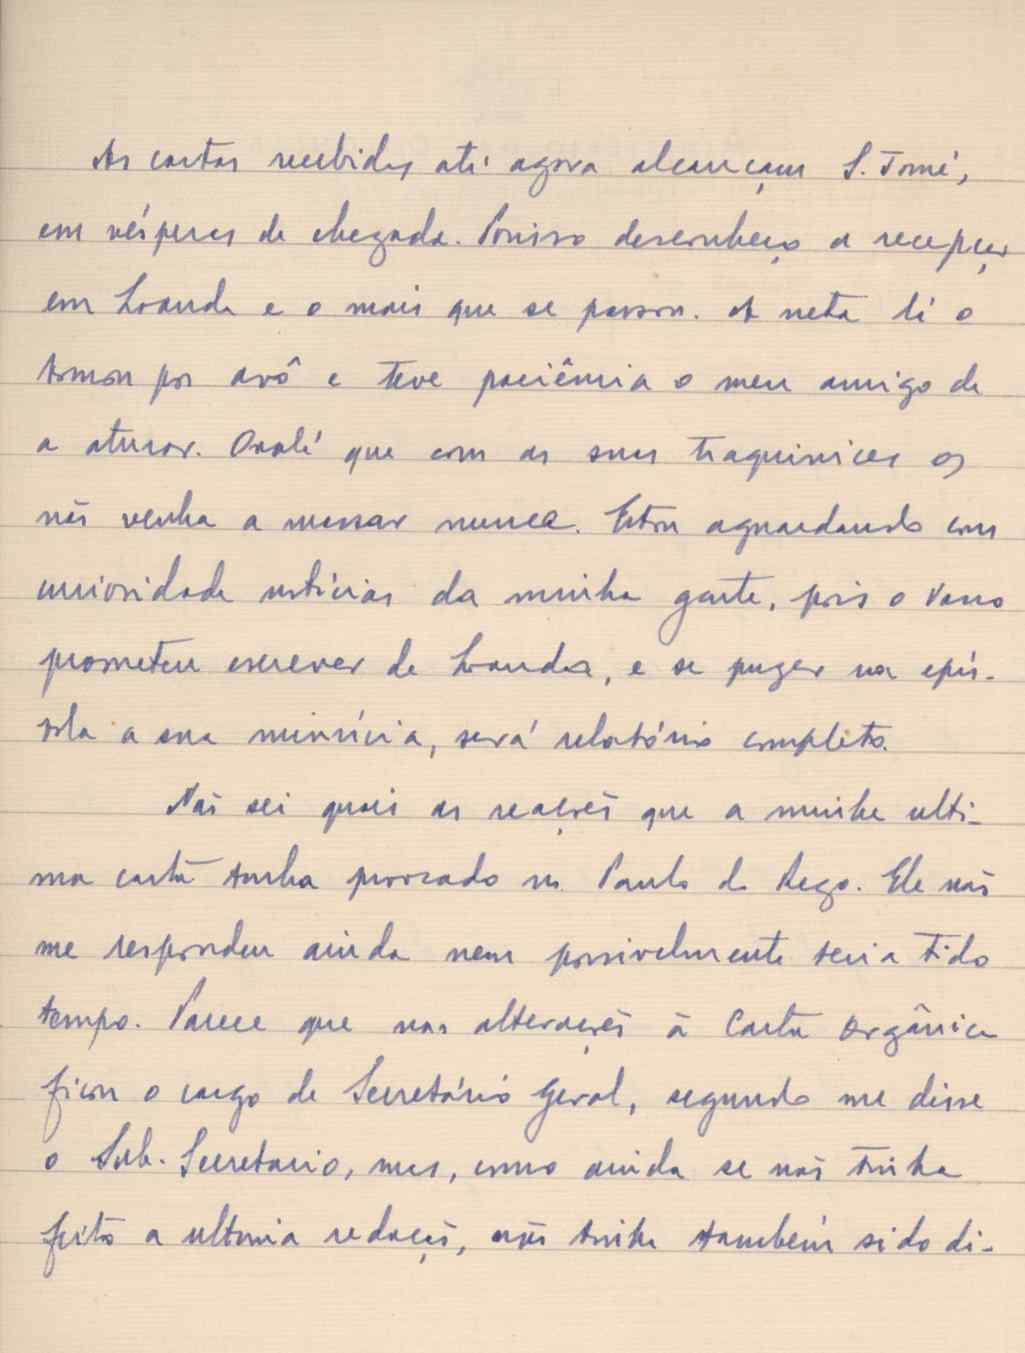 As cartas recebidas até agora alcançam S. Tomé,
em vésperas de chegada. Por isso desconheço a recepção
em Loanda e o mais que se passou. A neta lá o
tomou por avô e teve paciência o meu amigo de
a aturar. Oxalá que com as suas traquinices os
não venha a massar nunca. Estou aguardando com
curiosidade notícias da minha gente, pois o Vasco
prometeu escrever de Loanda, e se puzer na epís-
tola a sua minúcia, será relatório completo.
Não sei quais as reações que a minha ulti-
ma carta tenha provocado no Paulo do Rego. Ele não
me respondeu ainda nem possivelmente teria tido
tempo. Parece que nas alterações à Carta Orgânica
ficou o cargo de Secretário Geral, segundo me disse
o Sub-Secretario, mas, como ainda se não tinha
feito a ultima redação, não tinha também sido di-